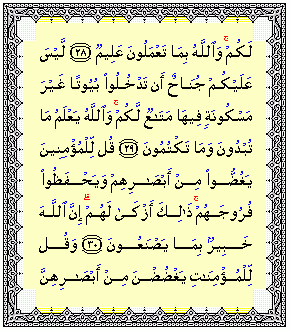 لَكُمْ ۚ وَاللَّهُ بِمَا تَعْمَلُونَ عَلِيمٌ ﴿٢٨﴾ لَّيْسَ
عَلَيْكُمْ جُنَاحٌ أَن تَدْخُلُوا۟ بُيُوتًا غَيْرَ
مَسْكُونَةٍ فِيهَا مَتَـٰعٌ لَّكُمْ ۚ وَاللَّهُ يَعْلَمُ مَا
تُبْدُونَ وَمَا تَكْتُمُونَ ﴿٢٩﴾ قُل لِّلْمُؤْمِنِينَ
يَغُضُّوا۟ مِنْ أَبْصَـٰرِهِمْ وَيَحْفَظُوا۟
فُرُوجَهُمْ ۚ ذَٰلِكَ أَزْكَىٰ لَهُمْ ۗ إِنَّ اللَّهَ
خَبِيرٌۢ بِمَا يَصْنَعُونَ ﴿٣٠﴾ وَقُل
لِّلْمُؤْمِنَـٰتِ يَغْضُضْنَ مِنْ أَبْصَـٰرِهِنَّ